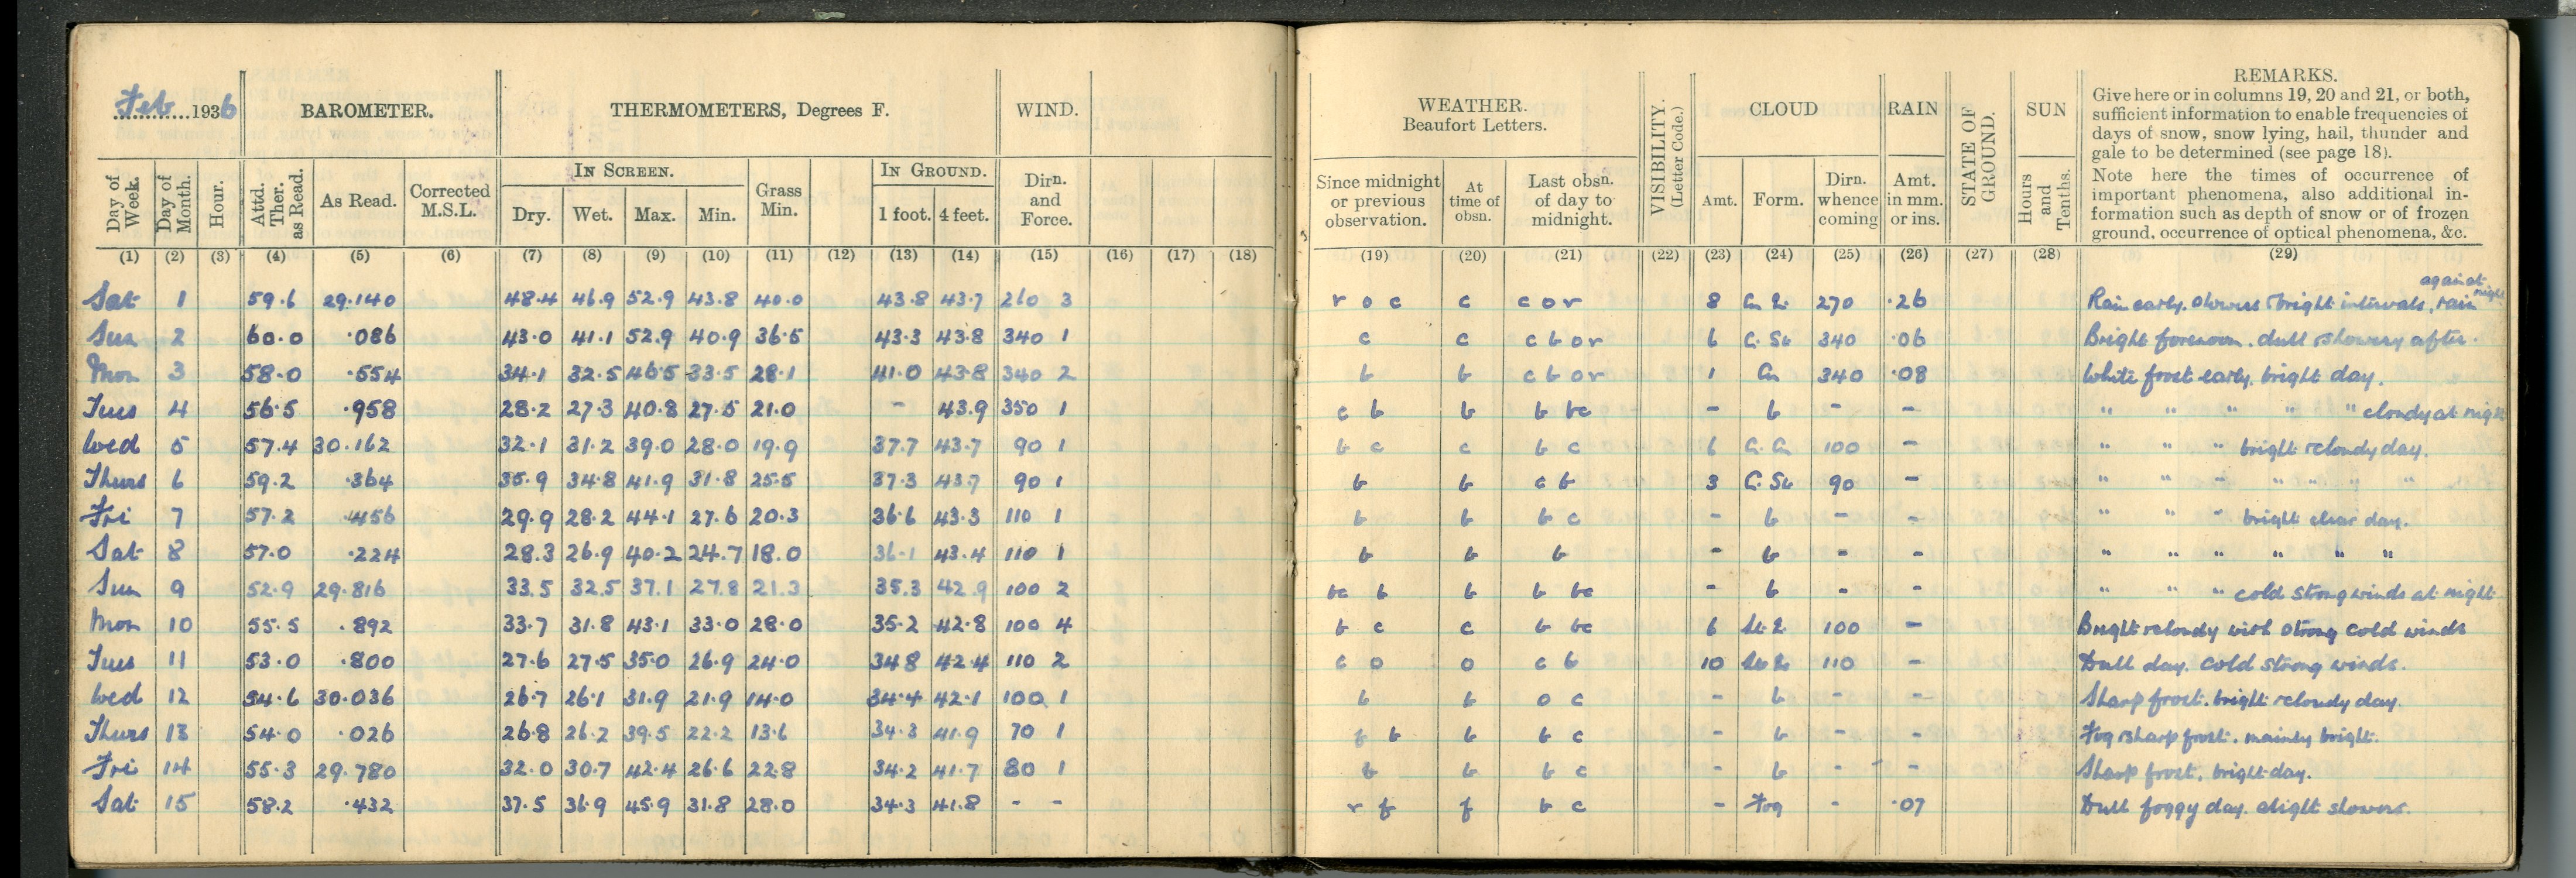 Feb 1936 BAROMETER. THERMOMETERS, Degrees F. WIND.
Day of Week. Day of Month. Hour. Attd. Ther. as Read. As Read. Corrected M.S.L. IN SCREEN. Dry. Wet. Max. Min. Grass Min. IN GROUND. 1 foot. 4 feet. Dirn. and Force.
(1) (2) (3) (4) (5) (6) (7) (8) (9) (10) (11) (12) (13) (14) (15) (16) (17) (18)
Sat 1 59.6 29.140 48.4 46.9 52.9 43.8 40.0 43.8 43.7 260 3
Sun 2 60.0 .086 43.0 41.1 52.9 40.9 36.5 43.3 43.8 340 1
Mon 3 58.0 .554 34.1 32.5 46.5 33.5 28.1 41.0 43.8 340 2
Tues 4 56.5 .958 28.2 27.3 40.8 27.5 21.0 - 43.9 350 1
Wed 5 57.4 30.162 32.1 31.2 39.0 28.0 19.9 37.7 43.7 90 1
Thurs 6 59.2 .364 35.9 34.8 41.9 31.8 25.5 37.3 43.7 90 1
Fri 7 57.2 .456 29.9 28.2 44.1 27.6 20.3 36.6 43.3 110 1
Sat 8 57.0 .224 28.3 26.9 40.2 24.7 18.0 36.1 43.4 110 1
Sun 9 52.9 29.816 33.5 32.5 37.1 27.8 21.3 35.3 42.9 100 2
Mon 10 55.5 .892 33.7 31.8 43.1 33.0 28.0 35.2 42.8 100 4
Tues 11 53.0 .800 27.6 27.5 35.0 26.9 24.0 34.8 42.4 110 2
Wed 12 54.6 30.036 26.7 26.1 31.9 21.9 14.0 34.4 42.1 100 1
Thurs 13 54.0 .026 26.8 26.2 39.5 22.2 13.6 34.3 41.9 70 1
Fri 14 55.3 29.780 32.0 30.7 42.4 26.6 22.8 34.2 41.7 80 1
Sat 15 58.2 .432 37.5 36.9 45.9 31.8 28.0 34.3 41.8 - -
WEATHER. Beaufort Letters. VISIBILITY. (Letter Code.) CLOUD RAIN STATE OF GROUND. SUN
Since midnight or previous observation. At time of obsn. Last obsn. of day to midnight. Amt. Form. Dirn. whence coming Amt. in mm. or ins. Hours and Tenths.
REMARKS.
Give here or in columns 19, 20 and 21, or both,
sufficient information to enable frequencies of
days of snow, snow lying, hail, thunder and
gale to be determined (see page 18).
Note here the times of occurrence of
important phenomena, also additional in-
formation such as depth of snow or of frozen
ground, occurrence of optical phenomena, &c.
(19) (20) (21) (22) (23) (24) (25) (26) (27) (28) (29)
r o c c c o r 8 270 .26 Rain early, showers & bright intervals, rain again at night
c c c b o r 6 C. St 340 .06 Bright forenoon, dull & showery after.
b b c b o r 1 Cu 340 .08 White frost early, bright day.
c b b b bc - b - - " " " " " cloudy at night
b c c b c 6 100 - " " " bright & cloudy day.
b b c b 3 C. St 90 - " " " " " " "
b b b c - b - - " " " bright clear day.
b b b - b - - " " " " " "
bc b b b bc - b - - " " " cold strong winds at night
b c c b bc 6 100 - Bright & cloudy with strong cold winds
c o o c b 10 110 - Dull day. cold strong winds.
b b o c - b - - Sharp frost. bright & cloudy day.
f b b b c - b - - Fog & sharp frost. mainly bright.
b b b c - b - - Sharp frost, bright day.
r f f b c - Fog - .07 Dull foggy day. slight showers.